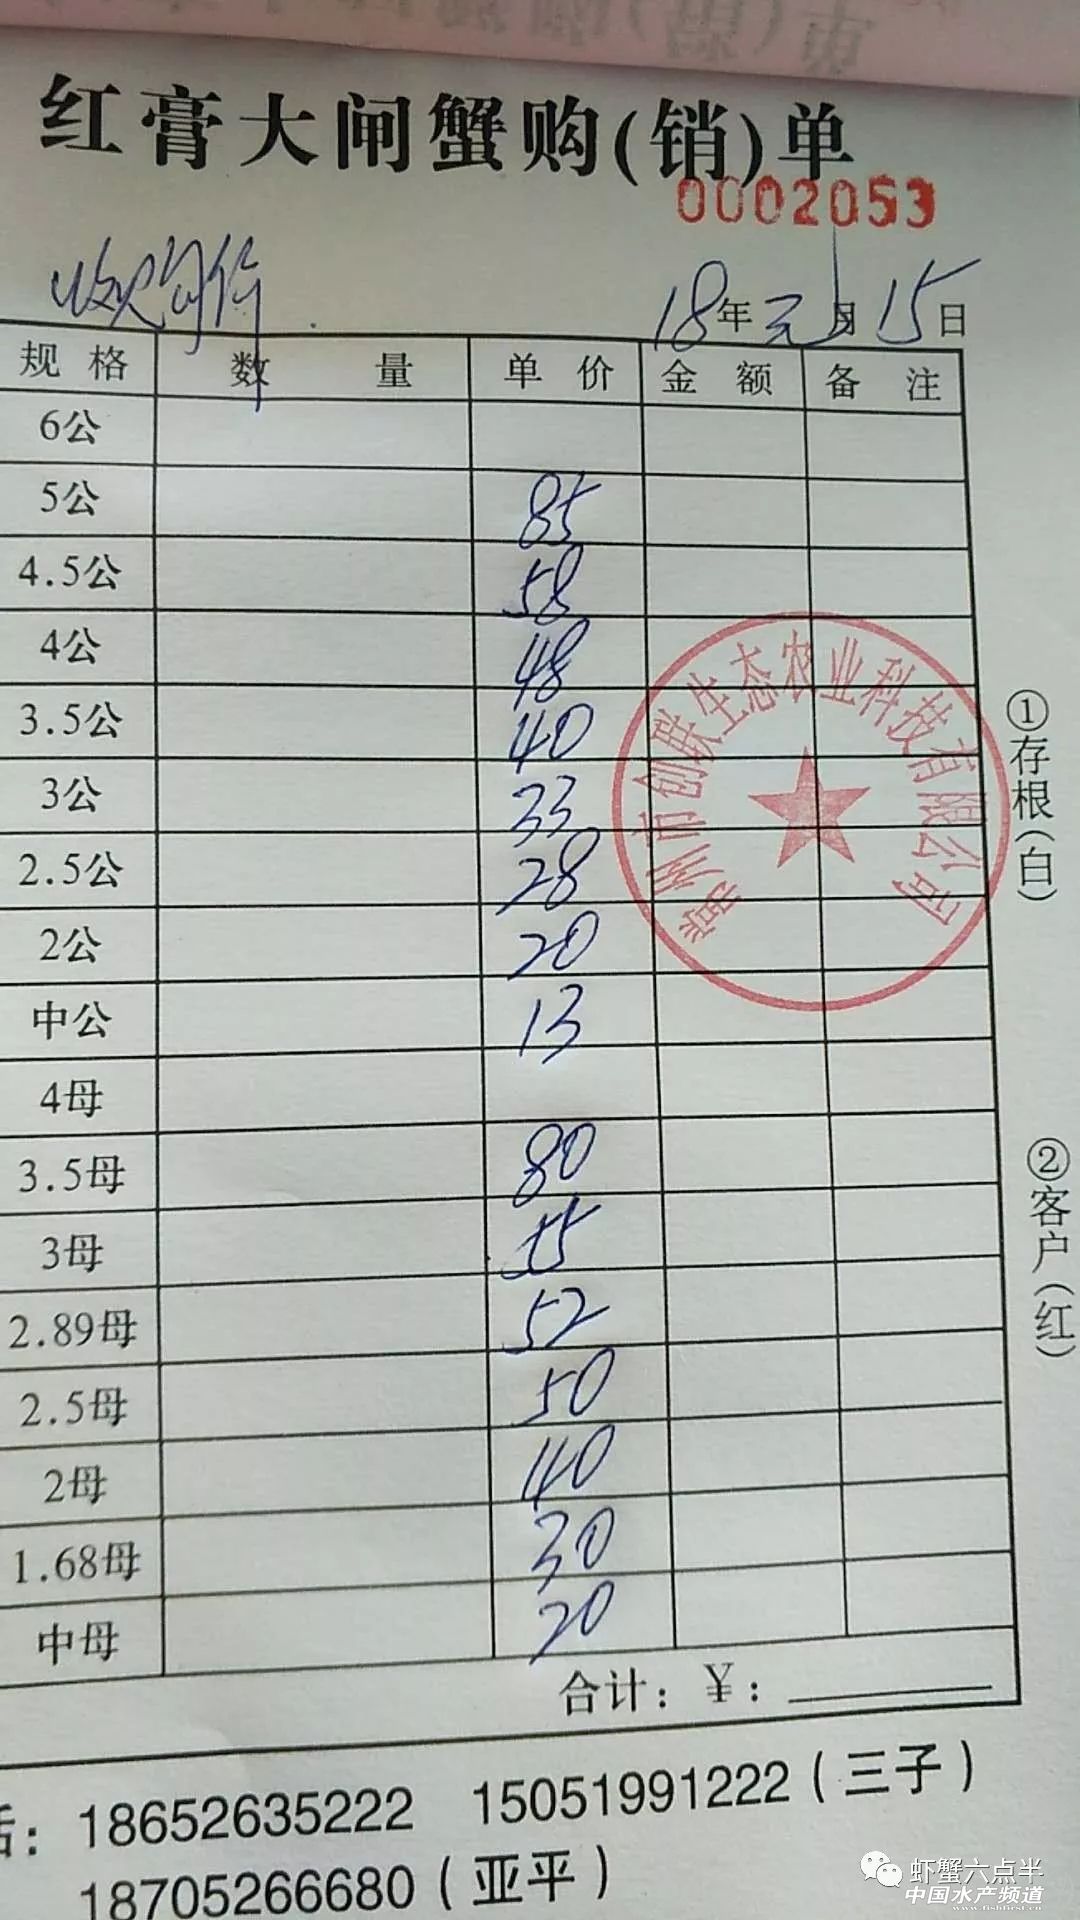 红膏大闸蟹购(销)单
0002053
收购价
18年元月15日
规格 数量 单价 金额 备注
6公
5公 85
4.5公 58
4公 48
3.5公 40
3公 33
2.5公 28
2公 20
中公 13
4母
3.5母 80
3母 55
2.89母 52
2.5母 50
2母 40
1.68母 30
中母 20
合计：¥：
常州市创联生态农业科技有限公司
①存根(白)
②客户(红)
话：18652635222 15051991222(三子)
18705266680(亚平)
虾蟹六点半
中国水产频道
www.fishfirst.cn